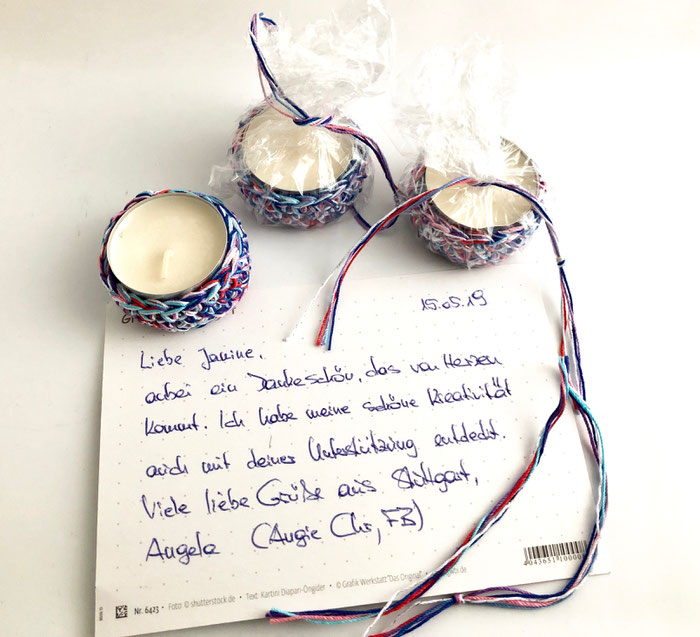 15.05.19
Liebe Janine,
anbei ein Dankeschön, das von Herzen
kommt. Ich habe meine schöne Kreativität
auch mit deiner Unterstützung entdeckt.
Viele liebe Grüße aus Stuttgart,
Angela (Angie Chr, FB)
Nr. 6423 • Foto: © shutterstock.de • Text: Kartini Diapari-Öngider • © Grafik Werkstatt "Das Original"